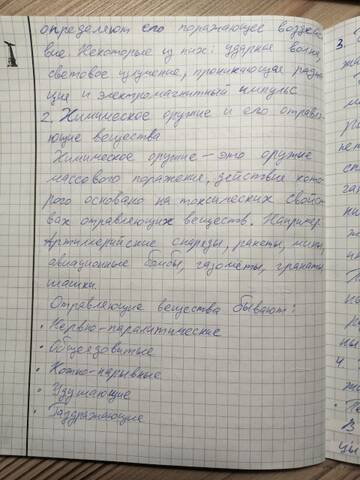 определяют его поражающее воздейст-
вие. Некоторые из них: ударная волна,
световое излучение, проникающая радиа-
ция и электромагнитный импульс
2. Химическое оружие и его отравля-
ющие вещества
Химическое оружие — это оружие
массового поражения, действие кото-
рого основано на токсических свойст-
вах отравляющих веществ. Например:
артиллерийские снаряды, ракеты, мины,
авиационные бомбы, газометы, гранаты,
шашки.
Отравляющие вещества бывают:
• Нервно-паралитические
• Общеядовитые
• Кожно-нарывные
• Удушающие
• Раздражающие